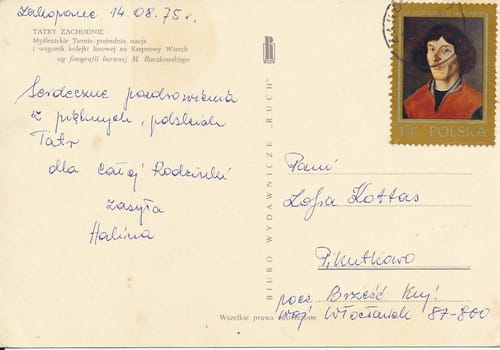 Zakopane, 14.08.75r.
TATRY ZACHODNIE
Myślenickie Turnie-pośrednia stacja
i wagonik kolejki linowej na Kasprowy Wierch
wg fotografii barwnej M. Raczkowskiego
Serdeczne pozdrowienia
z pięknych, polskich
Tatr
dla Całej Rodzinki
zasyła
Halina
BIURO WYDAWNICZE „RUCH"
Wszelkie prawa zastrzeżone
POLSKA
Pani
Zofia Kottas
Pikutkowo
pocz. Brześć Kuj.
woj. Włocławek 87-880